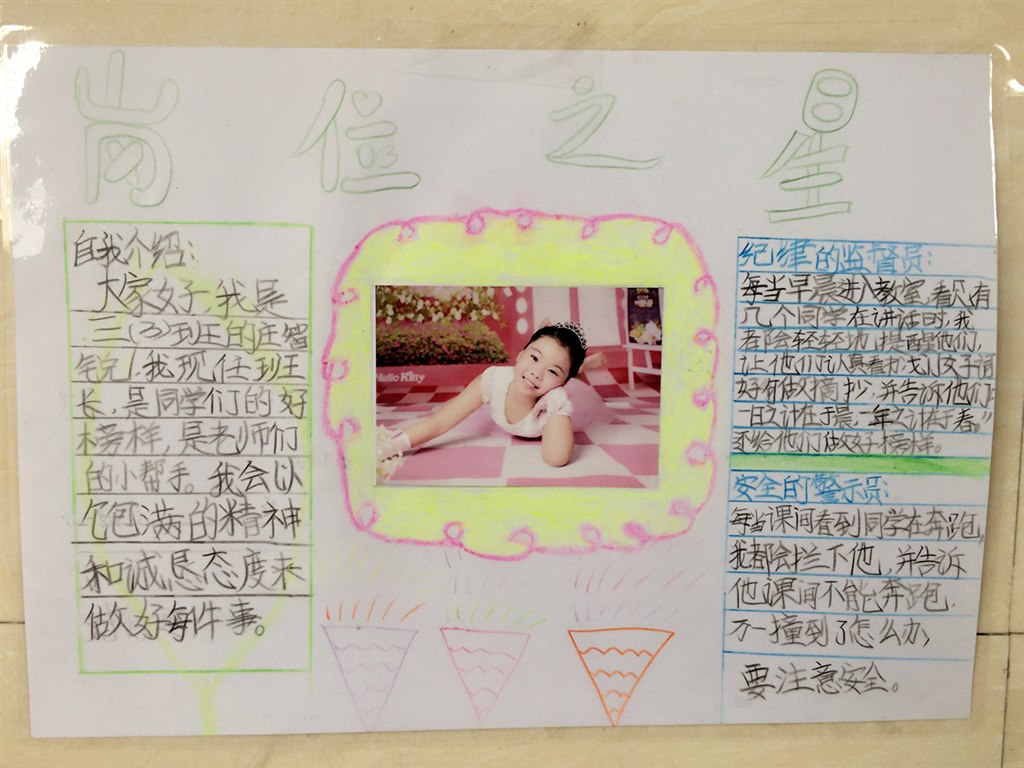 岗位之星
自我介绍:
大家好,我是
三(3)班的庄智
锐!我现任班王
长,是同学们的好
榜样,是老师们
的小帮手。我会以
饱满的精神
和诚恳态度来
做好每件事。
Hello Kitty
纪律的监督员:
每当早晨进入教室,看见有
几个同学在讲话时,我
都会轻轻地提醒他们,
让他们认真看书或好词
好句做摘抄,并告诉他们:
一日之计在于晨,一年之计在于春,”
还给他们做好榜样。
安全的警示员:
每当课间看到同学在奔跑,
我都会拦下他,并告诉
他课间不能奔跑,
万一撞到了怎么办,
要注意安全。